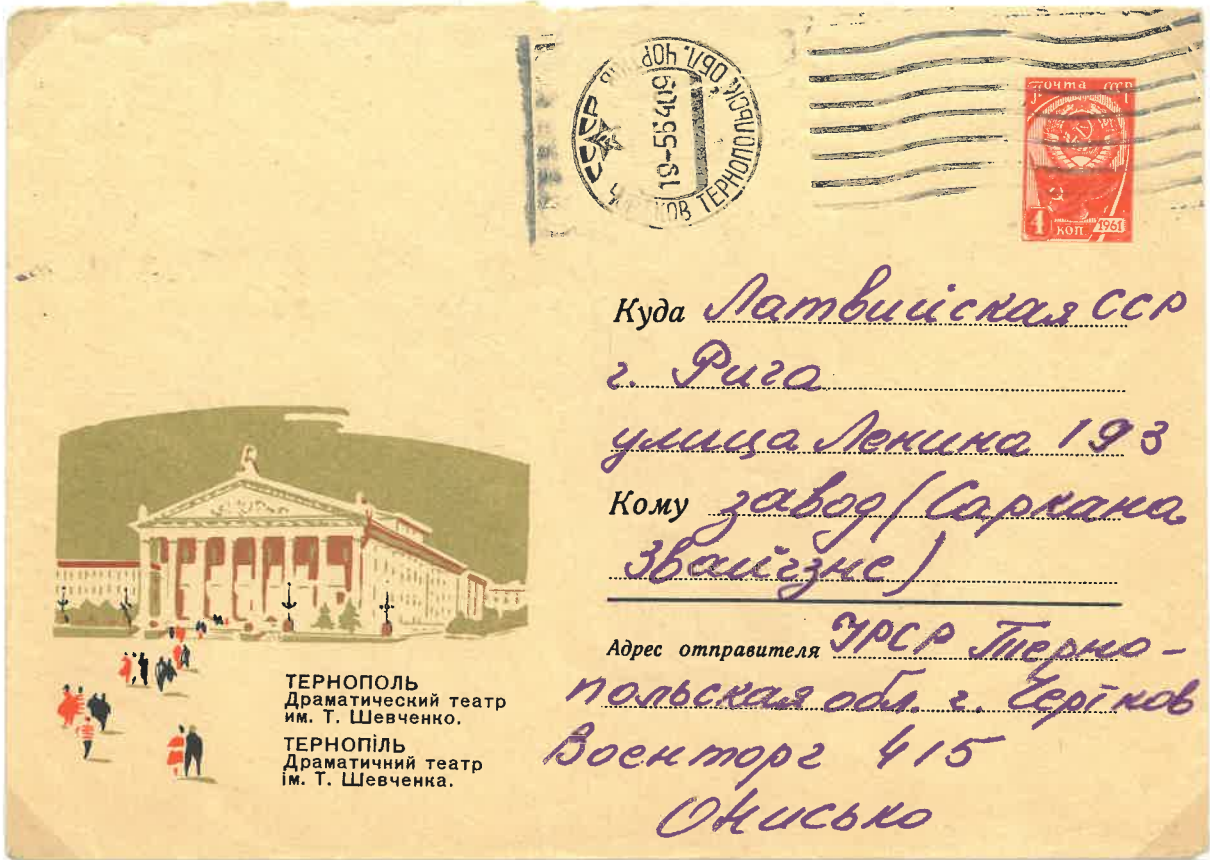 Почта СССР
4 коп 1961
СССР
ЧОРТКОВ ТЕРНОПОЛЬСК. ОБЛ. ЧОР
19-5
Куда Латвийская ССР
г. Рига
улица Ленина 193
Кому завод (Саркана
Звайгзне)
Адрес отправителя УРСР Терно-
польская обл. г. Чертков
Военторг 415
Онисько
ТЕРНОПОЛЬ
Драматический театр
им. Т. Шевченко.
ТЕРНОПІЛЬ
Драматичний театр
ім. Т. Шевченка.